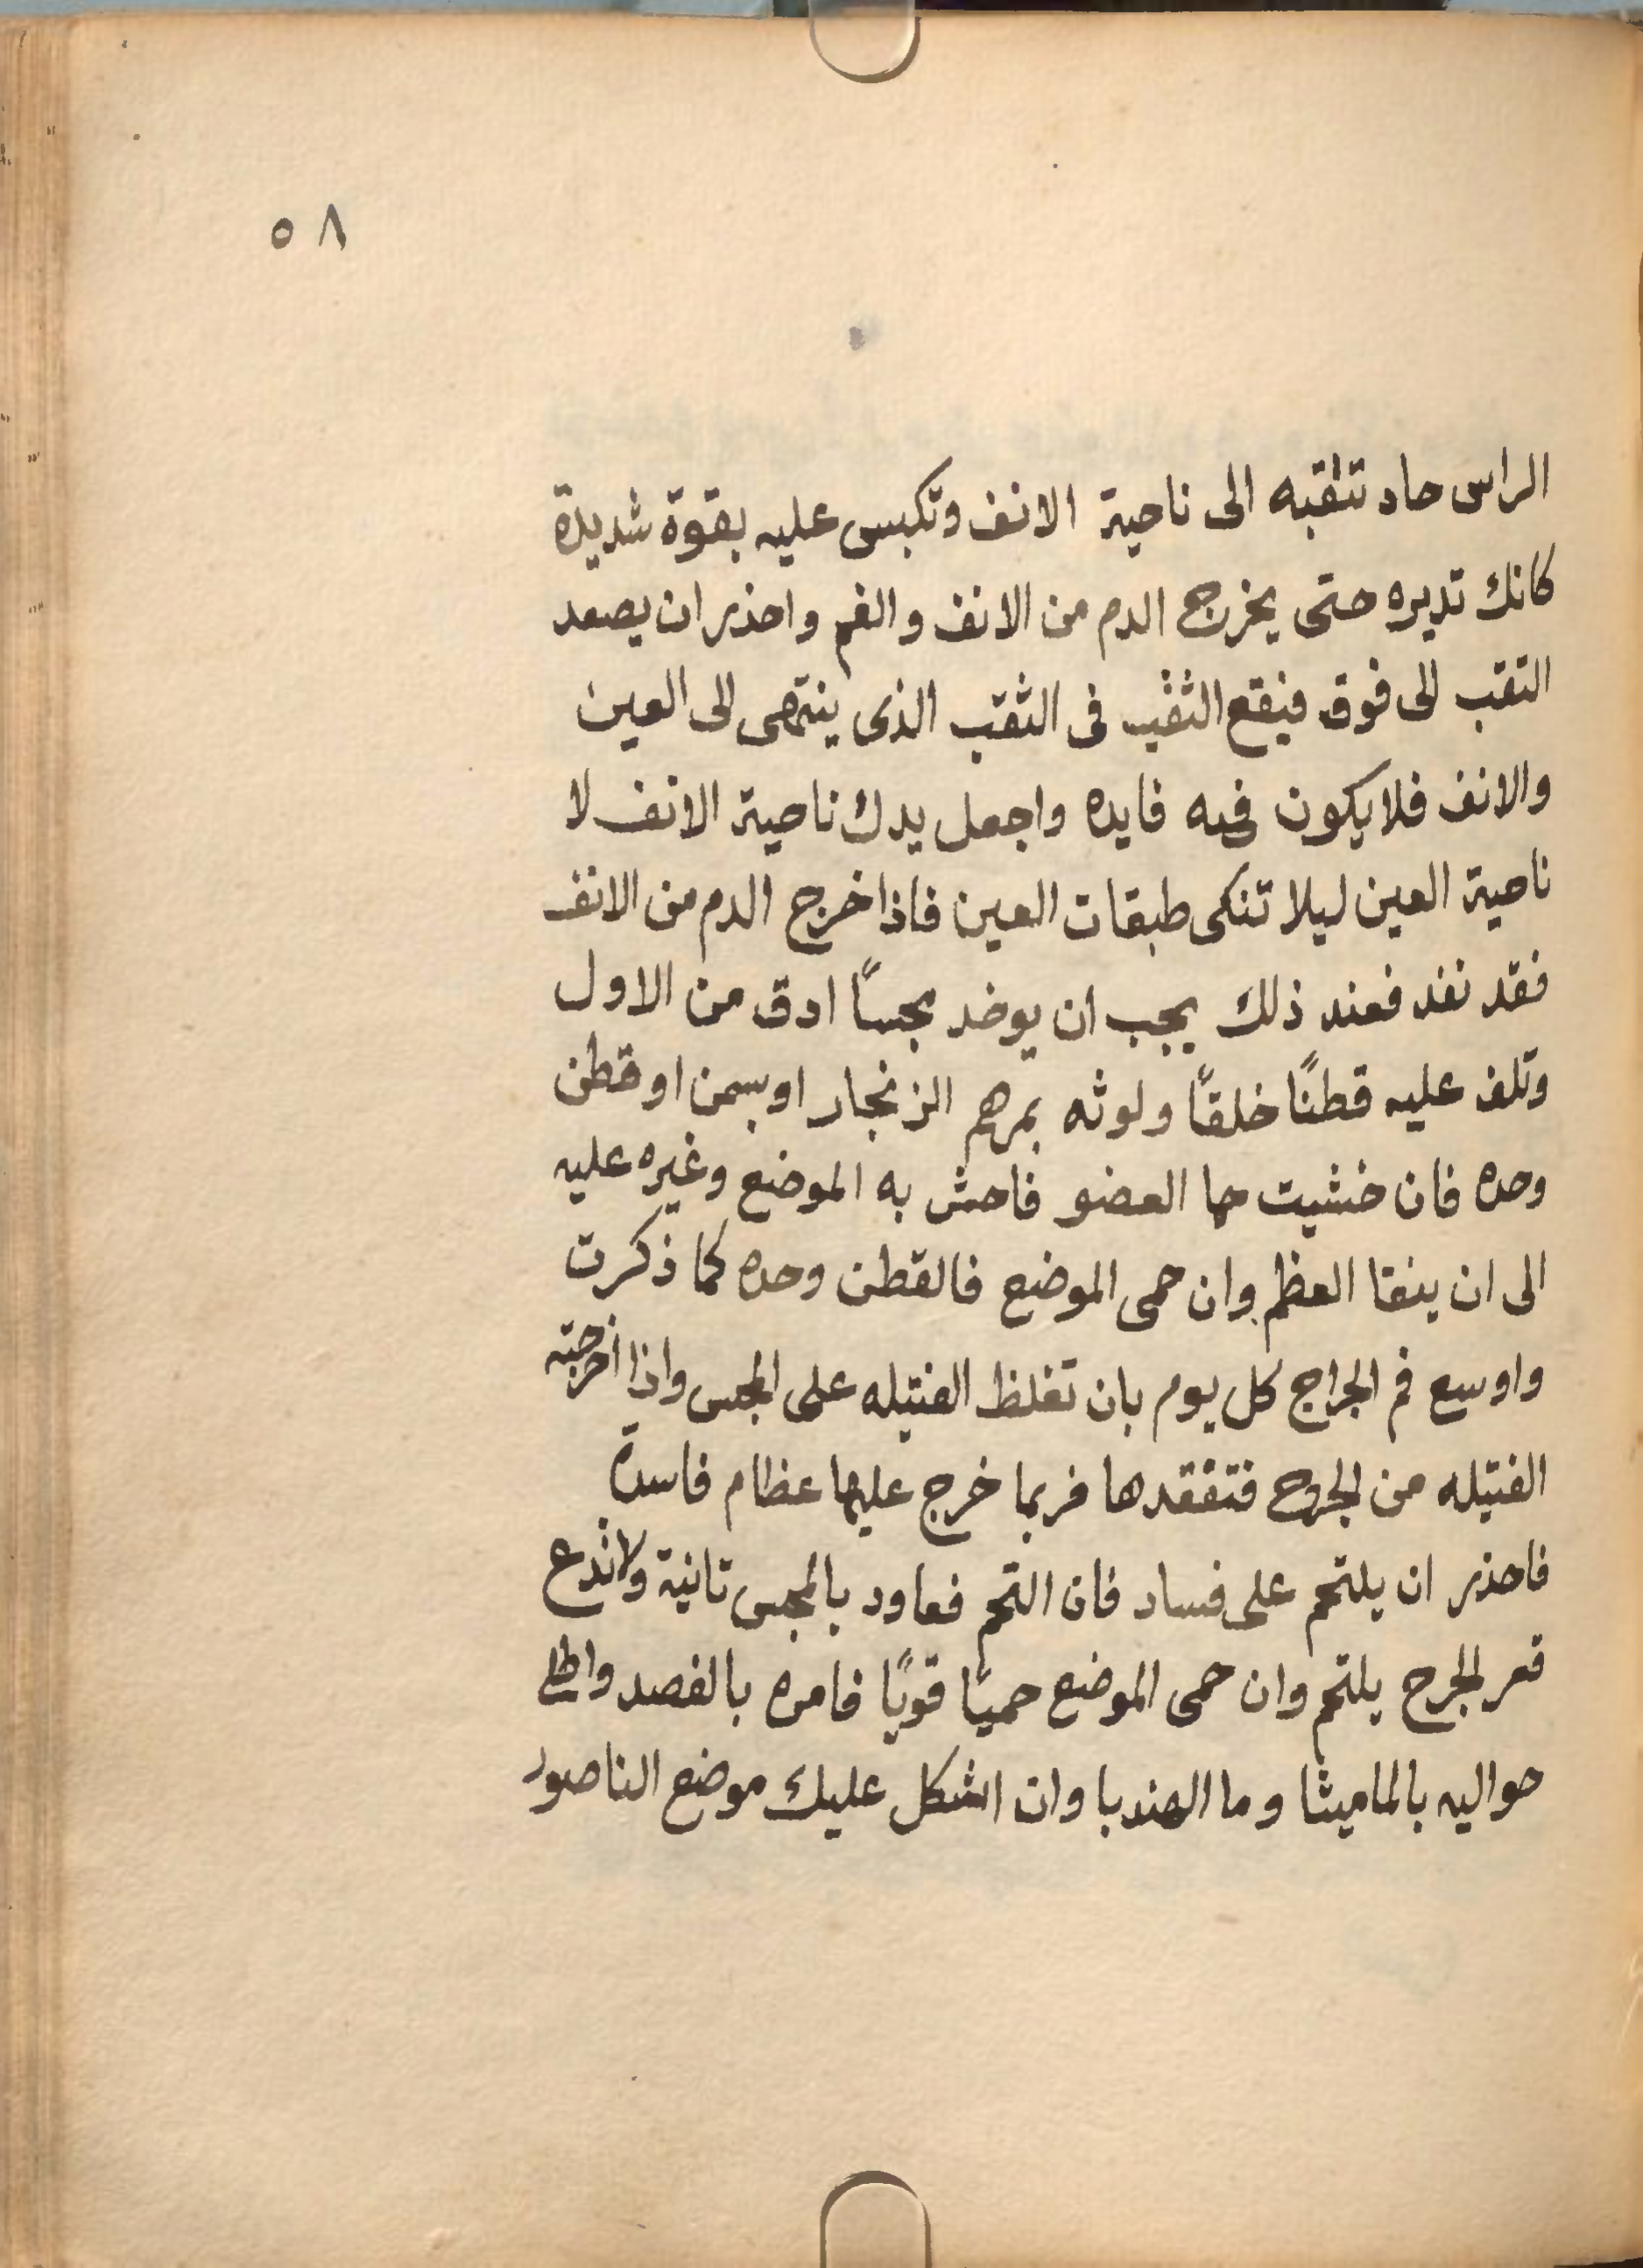 ٥٨
الراس حاد تثقبه الى ناحية الانف وتكبس عليه بقوة شديدة
كانك تديره حتى يخرج الدم من الانف والفم واحذر ان يصعد
التقب الى فوق فيقع الثقب فى الثقب الذى ينتهى الى العين
والانف فلا يكون فيه فايده واجعل يدك ناحية الانف لا
ناحية العين ليلا تنكى طبقات العين فاذا خرج الدم من الانف
فقد نفد فعند ذلك يجب ان يوخد مجسًا ادق من الاول
وتلف عليه قطنًا خلقًا ولوثه بمرهم الزنجار او بسمن او قطن
وحده فان خشيت حما العضو فاحش به الموضع وغيره عليه
الى ان ينقا العظم وان حمى الموضع فالقطن وحده كما ذكرت
واوسع فم الجراح كل يوم بان تغلظ الفتيله على المجس واذا اخرجته
الفتيله من الجروح فتفقدها فربما خرج عليها عظام فاسدة
فاحذر ان يلتحم على فساد فان التحم فعاود بالمجس تانية ولا تدع
قعر الجرح يلتحم وان حمى الموضع حميًا قويًا فامره بالفصد واطلى
حواليه بالماميثا وما الهندبا وان اشكل عليك موضع الناصور